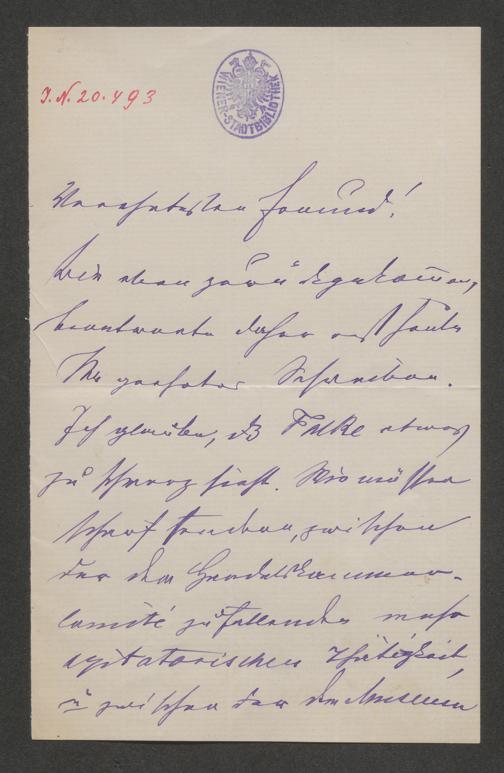 J.N. 20.493
WIENER-STADTBIBLIOTHEK
Verehrtester Freund!
Bin eben zurückgekommen,
beantworte daher erst heute
Ihr geehrtes Schreiben.
Ich glaube, dß Falke etwas
zu schwarz sieht. Wir müssen
scharf trennen, zwischen
der dem Handelskammer-
Comité zufallenden mehr
agitatorischen Thätigkeit,
u zwischen der dem Museum